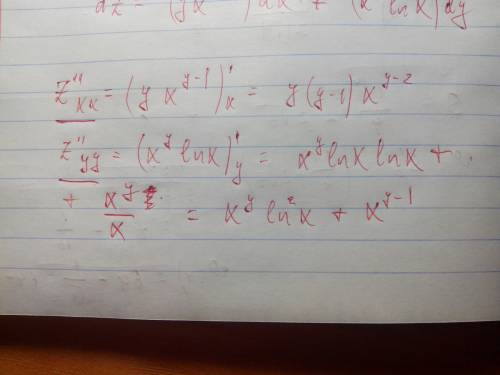 dz = (yx ) dx + (x lnx) dy
z''xx = (y x^{y-1})'x = y(y-1) x^{y-2}
z''yy = (x^y lnx)'y = x^y lnx lnx +
+ x^y/x = x^y ln²x + x^{y-1}